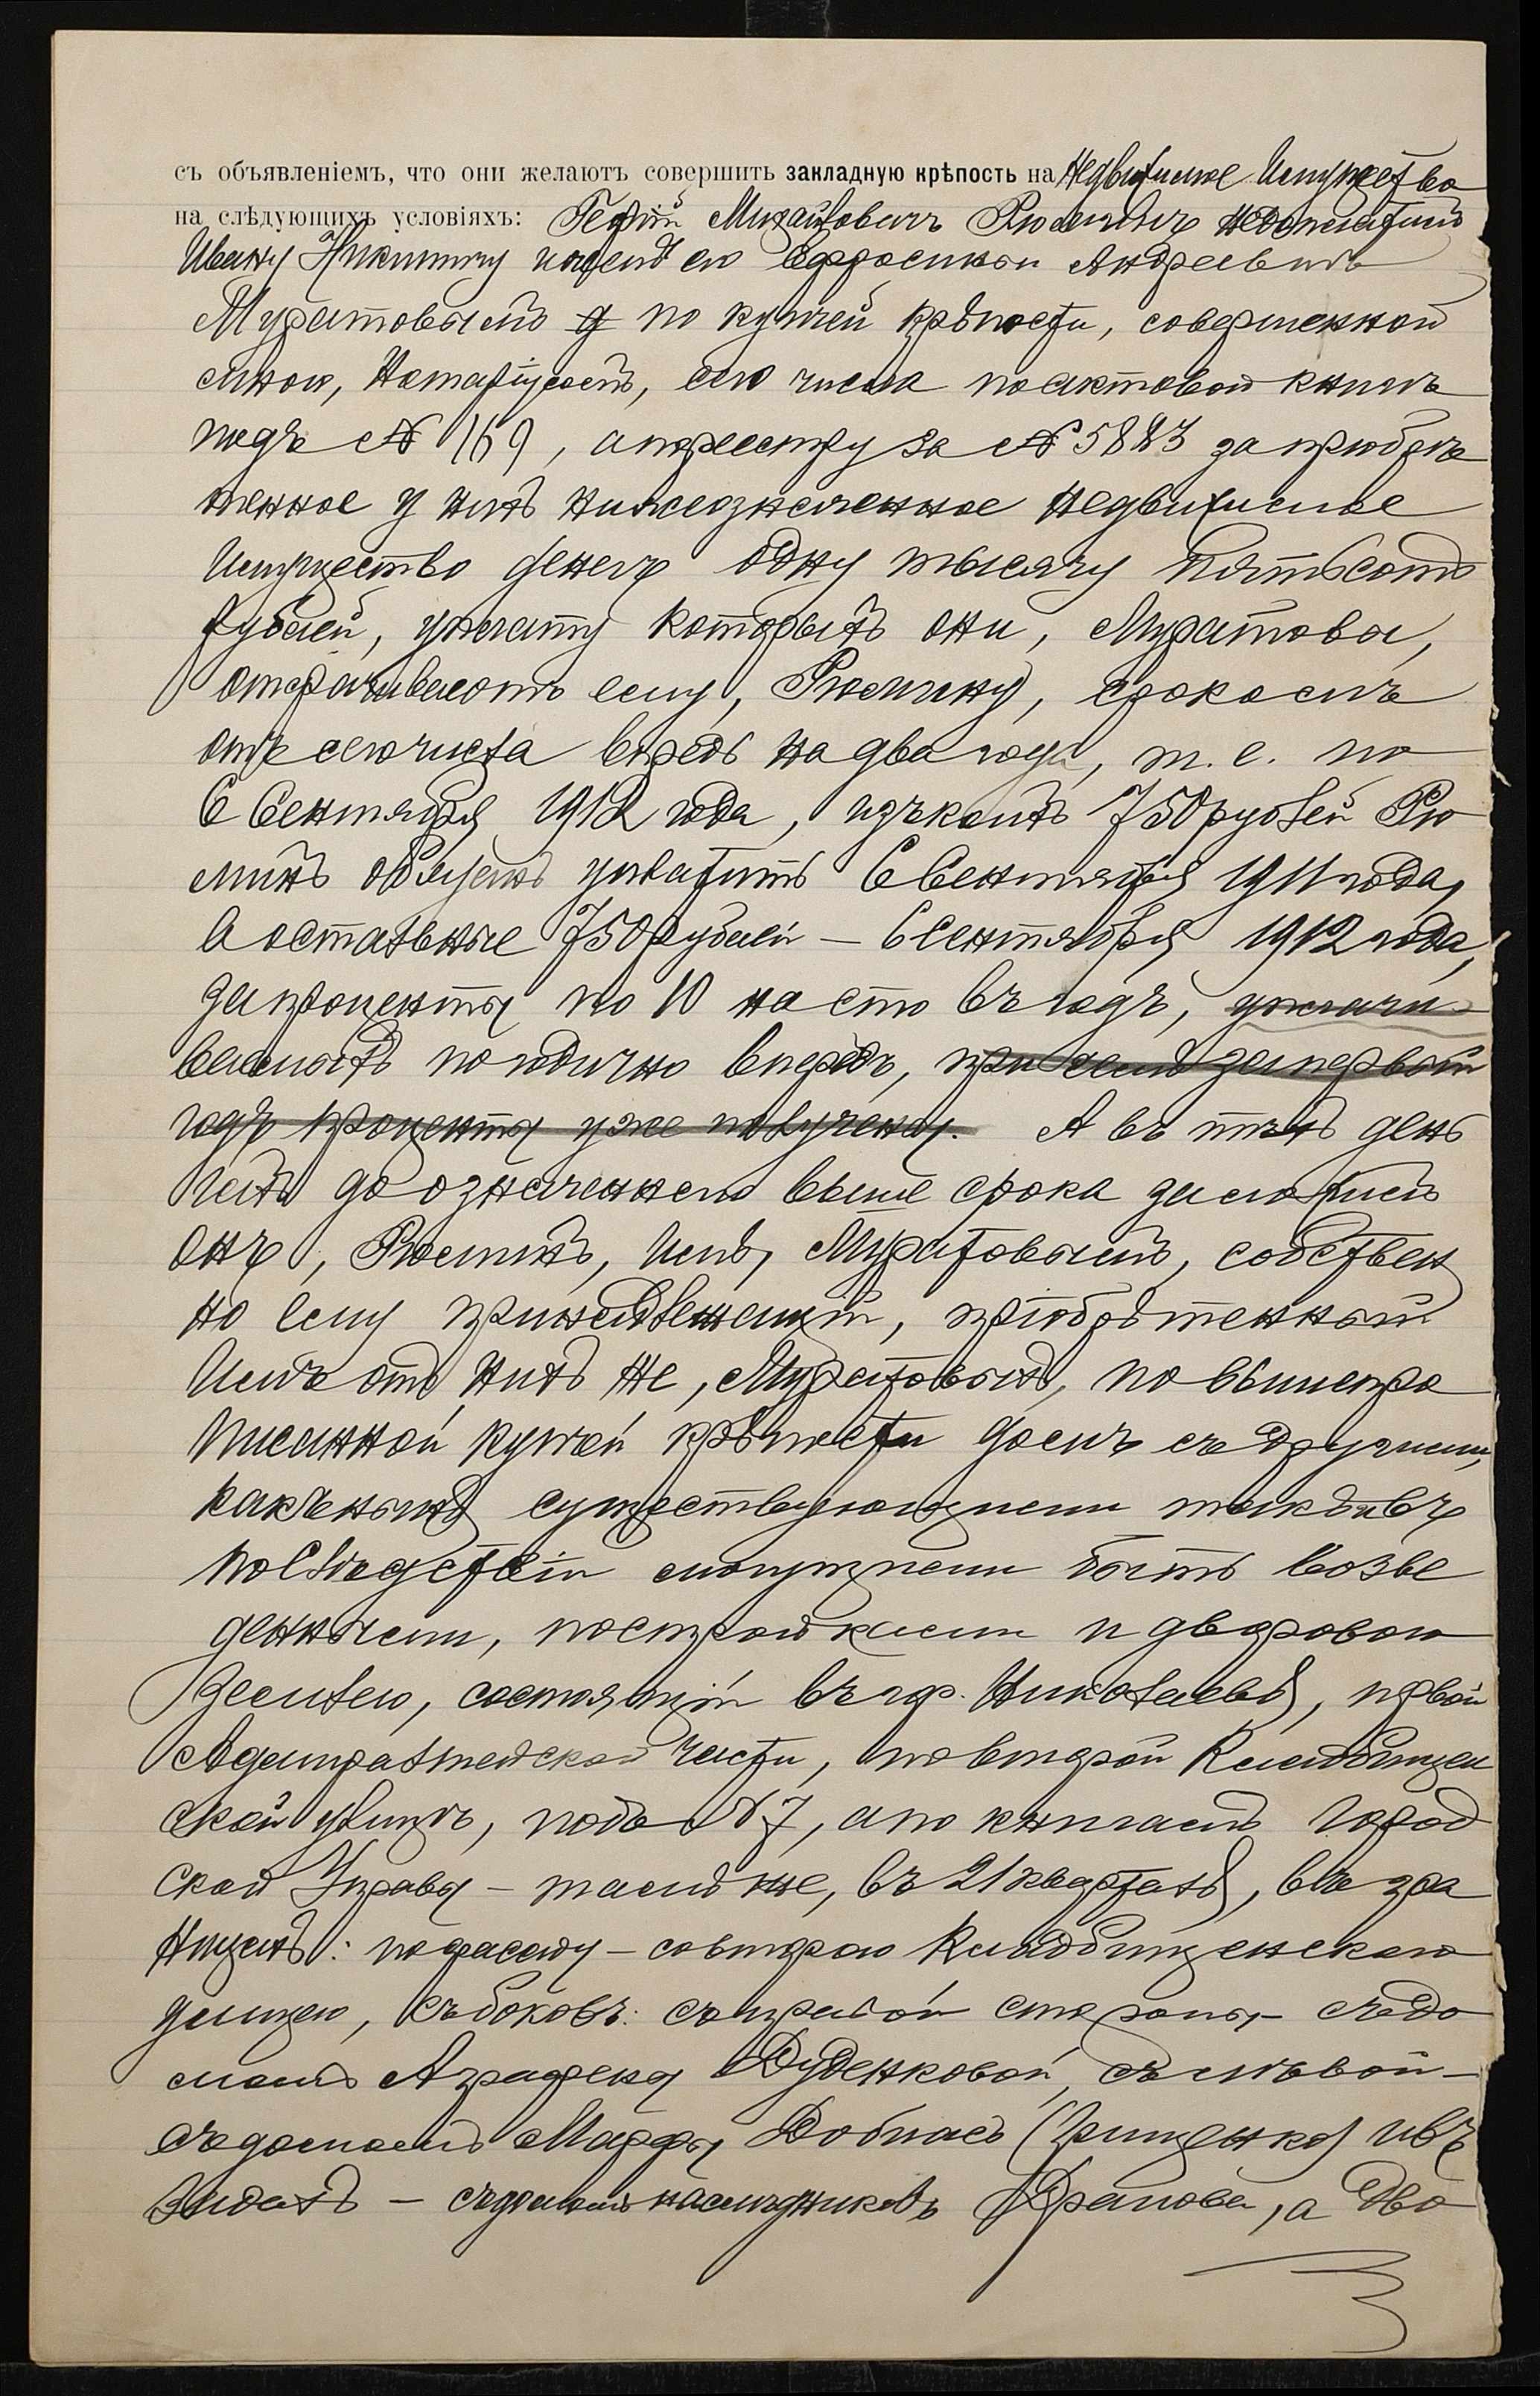 съ объявленіемъ, что они желаютъ совершить закладную крѣпость на недвижимое имущество
на слѣдующихъ условіяхъ: Михайловичъ Рюминъ недоплатилъ
Ивану Никитичу и женѣ его Евфросиніи Андреевнѣ
Муратовымъ по купчей крѣпости, совершенной
мною, Нотаріусомъ, сего числа по актовой книгѣ
подъ № 169, а по реестру за № 5883 за пріобрѣ
тенное у нихъ нижеозначенное недвижимое
имущество денегъ одну тысячу пятьсотъ
рублей, уплату которыхъ они, Муратовы,
отсрачиваютъ ему, Рюмину, срокомъ
отъ сего числа впредь на два года, т. е. по
6 Сентября 1912 года, изъ коихъ 750 рублей Рю
минъ обязанъ уплатить 6 Сентября 1911 года,
а остальные 750 рублей – 6 Сентября 1912 года,
за проценты по 10 на сто въ годъ, уплачи
ваемыхъ погодично впередъ, при чемъ за первый
годъ проценты уже получены. А въ тѣхъ день
гахъ до означеннаго выше срока заложилъ
онъ, Рюминъ, имъ, Муратовымъ, собствен
но ему принадлежащій, пріобрѣтенный
имъ отъ нихъ же, Муратовыхъ, по вышепро
писанной купчей крѣпости домъ съ другими,
какъ нынѣ существующими такъ и въ
послѣдствіи могущими быть возве
денными, постройками и дворовою
землею, состоящій въ гор. Николаевѣ, первой
Адмиралтейской части, по второй Кладбищен
ской улицѣ, подъ № 7, а по книгамъ город
ской Управы – тамъ же, въ 21 кварталѣ, въ гра
ницахъ: по фасаду – со второю Кладбищенскою
улицею, съ боковъ: съ правой стороны – съ до
момъ Аграфены Дуденковой, съ лѣвой –
съ домомъ Марфы (Грищенко) и въ
задахъ – съ домомъ наслѣдниковъ а дво